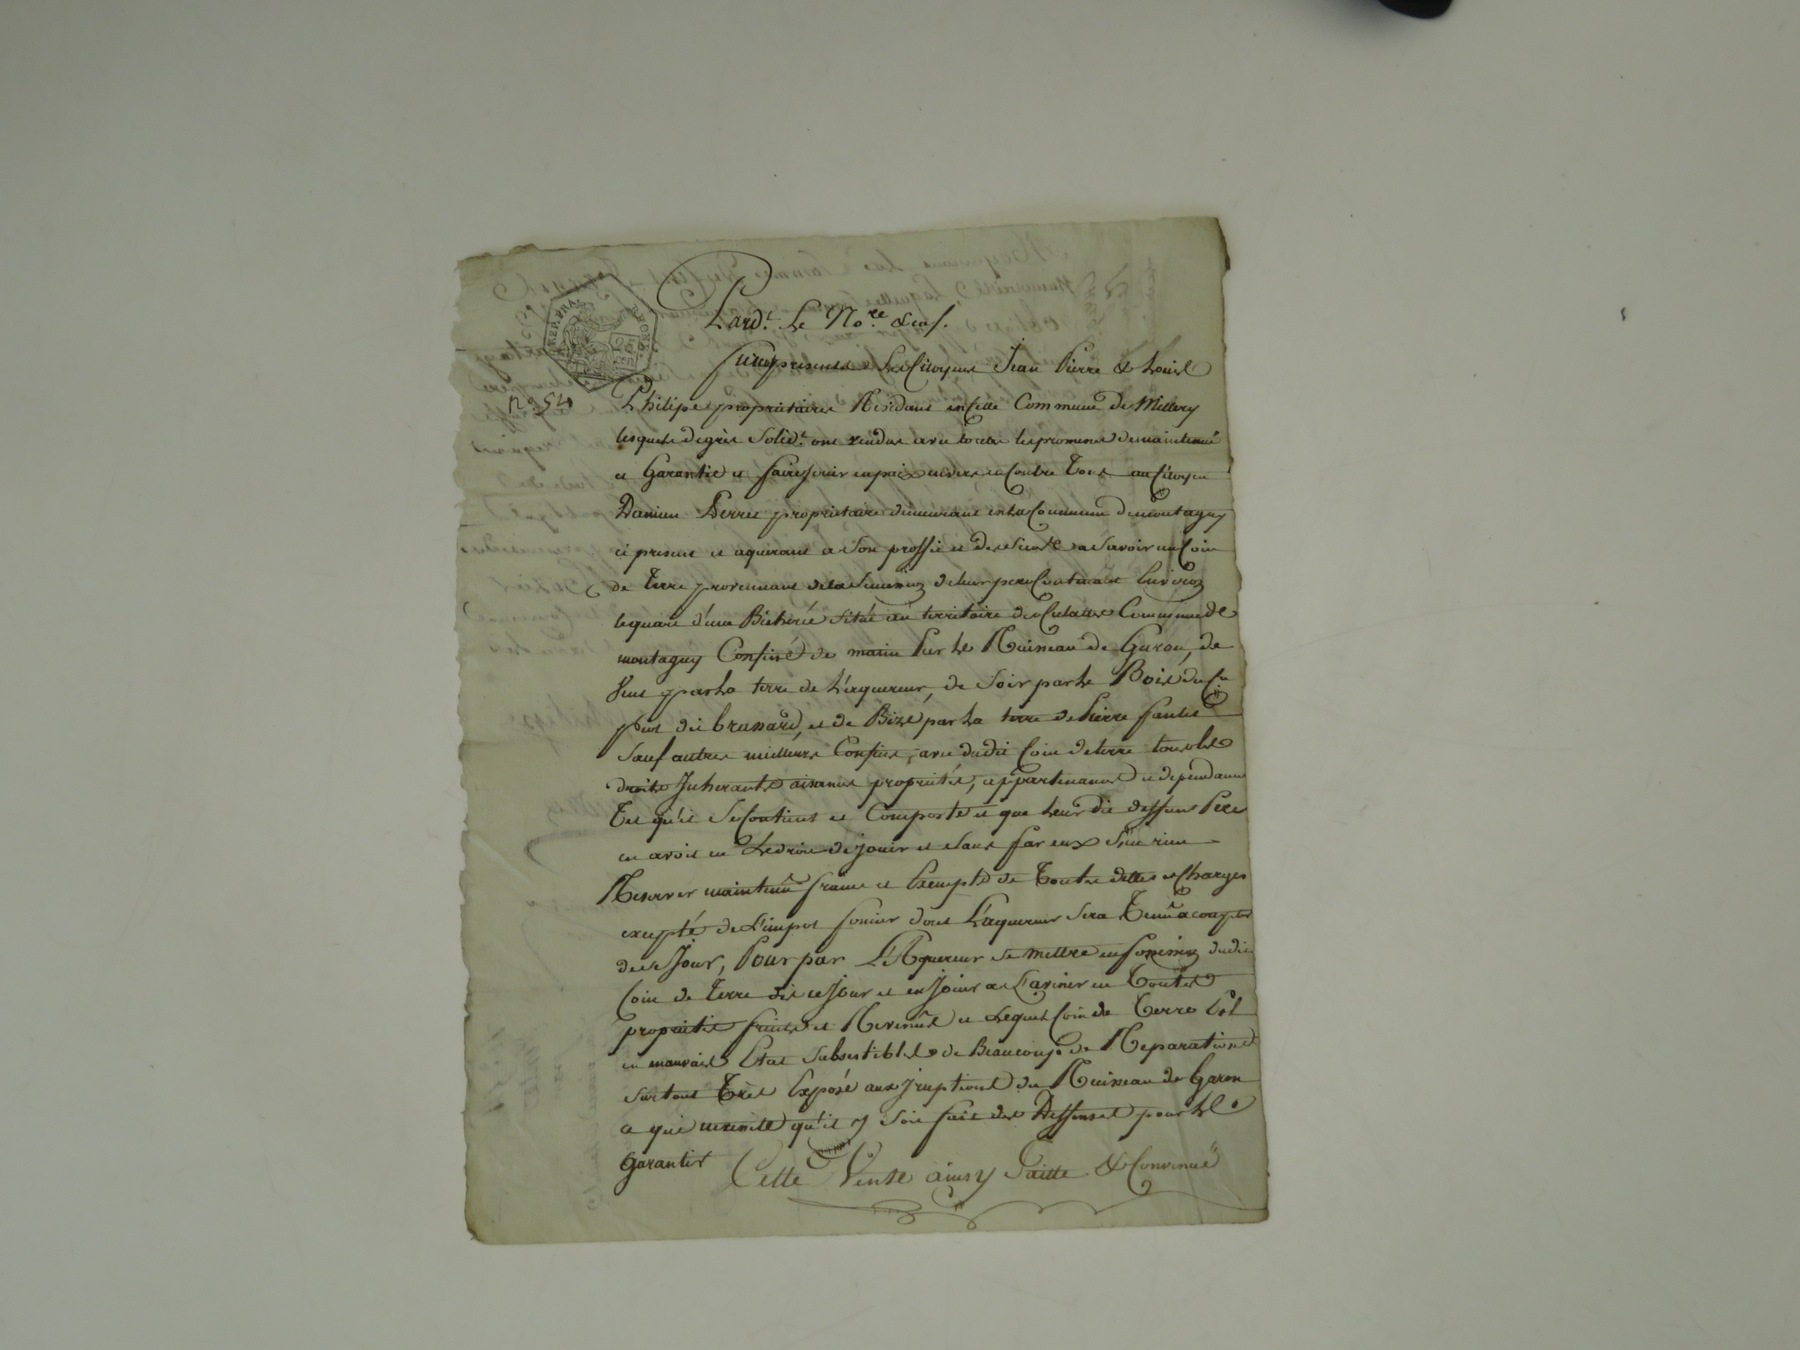 REP. FRA.
25
CEN
n° 54
Pard.t Le No.re &
furent presents Les Citoyens Jean Pierre & Louis
Philipes proprietaires Residans en cette Commune de Millery
lesquels de grés Solid.t ont vendus avec toutes les promesses de maintenue
et Garantie et faire jouir en paix envers et Contre Tous au Citoyen
Damien Perret proprietaire demeurant en La Commune de montagny
ci present et aquerant a Son proffit et des Siens a Savoir un Coin
de Terre provenant de la de leur pere Contenant Environ
le quart d'une Bicherée Située au territoire des Commune de
montagny Confiné de matin par Le Ruisseau de Garon, de
Vent par La terre de L'aquereur, de Soir par Le Bois du Cn
dit brussard, et de Bize par La terre de Pierre
Sauf autres meilleurs Confins, avec dudit Coin de terre tous Les
droits Inherants aisances proprietés, appartenances et dependances
Tel qu'il Se Contient et Comporte et que Leur dit deffunt Pere
en avoit eu Le droit de jouir et Sans par eux S'en rien
Reserver maintenu franc et Exempt de Toutes dettes et Charges
excepté de L'impot foncier dont L'aquereur Sera Tenu a compter
de ce Jour, Pour par L'Aquereur se mettre en dudit
Coin de Terre dès ce Jour et en Jouir a L'avenir en Toutes
proprietés fruits et Revenus et Lequel Coin de Terre Est
en mauvais Etat de Beaucoup de Reparations
surtout Très Exposé aux Iruptions du Ruisseau de Garon
a qui necessite qu'il y Soit fait des Deffenses pour Le
Garantir Cette Vente ainsy Faitte & Convenue